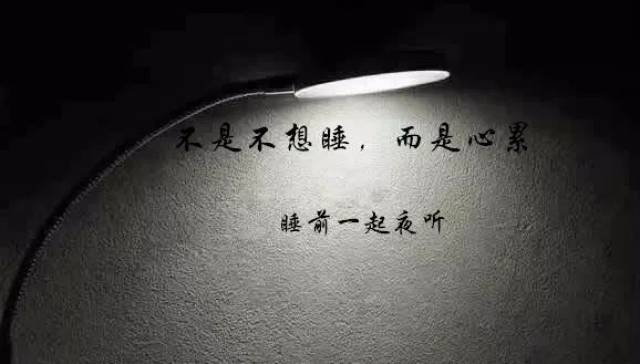 不是不想睡，而是心累
睡前一起夜听